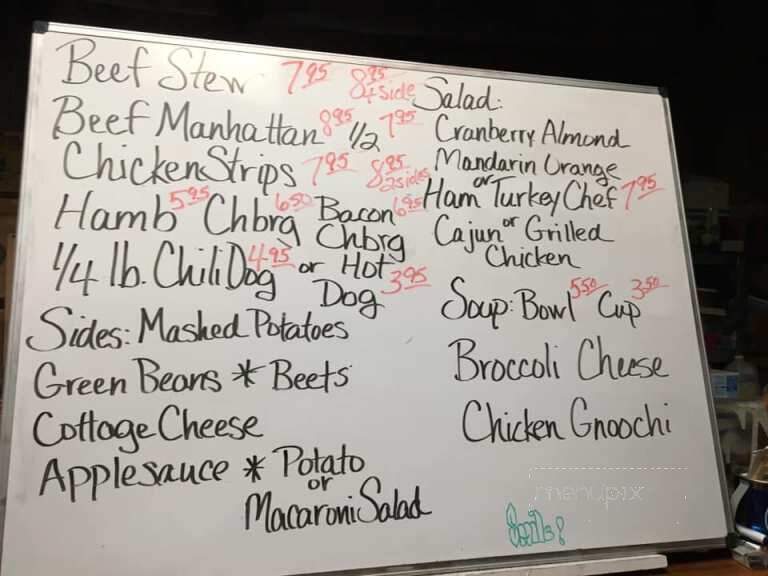 Beef Stew 7.95 8.95 + side
Beef Manhattan 8.95 1/2 7.95
Chicken Strips 7.95 8.95 2 sides
Hamb 5.95 Chbrg 6.50 Bacon Chbrg 6.95
1/4 lb. Chili Dog 4.95 or Hot Dog 3.95
Sides: Mashed Potatoes
Green Beans * Beets
Cottage Cheese
Applesauce * Potato
or
Macaroni Salad
Salad:
Cranberry Almond
Mandarin Orange
Ham or Turkey Chef 7.95
Cajun or Grilled
Chicken
Soup: Bowl 5.50 Cup 3.50
Broccoli Cheese
Chicken Gnocchi
menupix